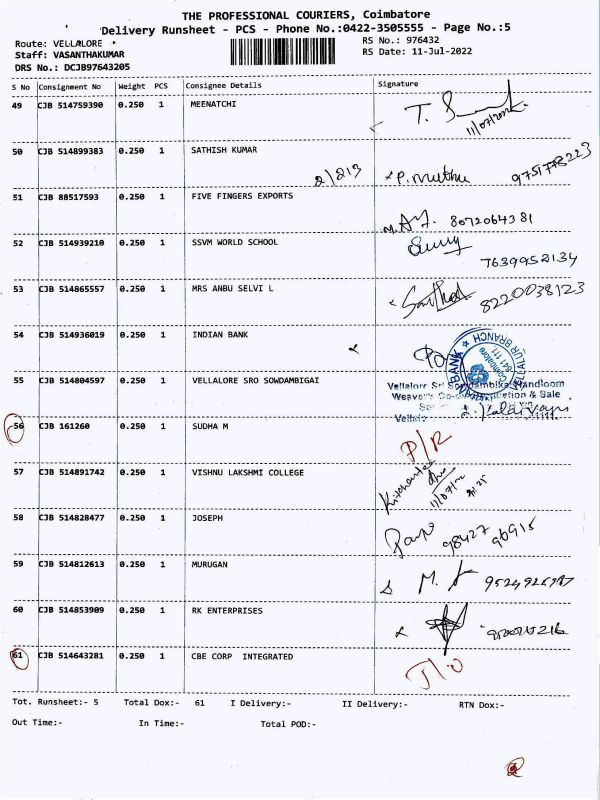 THE PROFESSIONAL COURIERS, Coimbatore
Delivery Runsheet - PCS - Phone No.:0422-3505555 - Page No.:5
Route: VELLALORE
RS No.: 976432
Staff: VASANTHAKUMAR
RS Date: 11-Jul-2022
DRS No.: DCJB97643205
S No Consignment No Weight PCS Consignee Details Signature
49 CJB 514759390 0.250 1 MEENATCHI
11/07/2022
50 CJB 514899383 0.250 1 SATHISH KUMAR
2/213 P. Muthu
51 CJB 88517593 0.250 1 FIVE FINGERS EXPORTS
8072064381
52 CJB 514939210 0.250 1 SSVM WORLD SCHOOL
7639952134
53 CJB 514865557 0.250 1 MRS ANBU SELVI L
8220038123
54 CJB 514936019 0.250 1 INDIAN BANK
BANK
Coimbatore
641 111
BRANCH
55 CJB 514804597 0.250 1 VELLALORE SRO SOWDAMBIGAI
Handloom
& Sale
56 CJB 161260 0.250 1 SUDHA M
P/R
57 CJB 514891742 0.250 1 VISHNU LAKSHMI COLLEGE
58 CJB 514828477 0.250 1 JOSEPH
98427 96915
59 CJB 514812613 0.250 1 MURUGAN
60 CJB 514853909 0.250 1 RK ENTERPRISES
61 CJB 514643281 0.250 1 CBE CORP INTEGRATED
Tot. Runsheet:- 5 Total Dox:- 61 I Delivery:- II Delivery:- RTN Dox:-
Out Time:- In Time:- Total POD:-